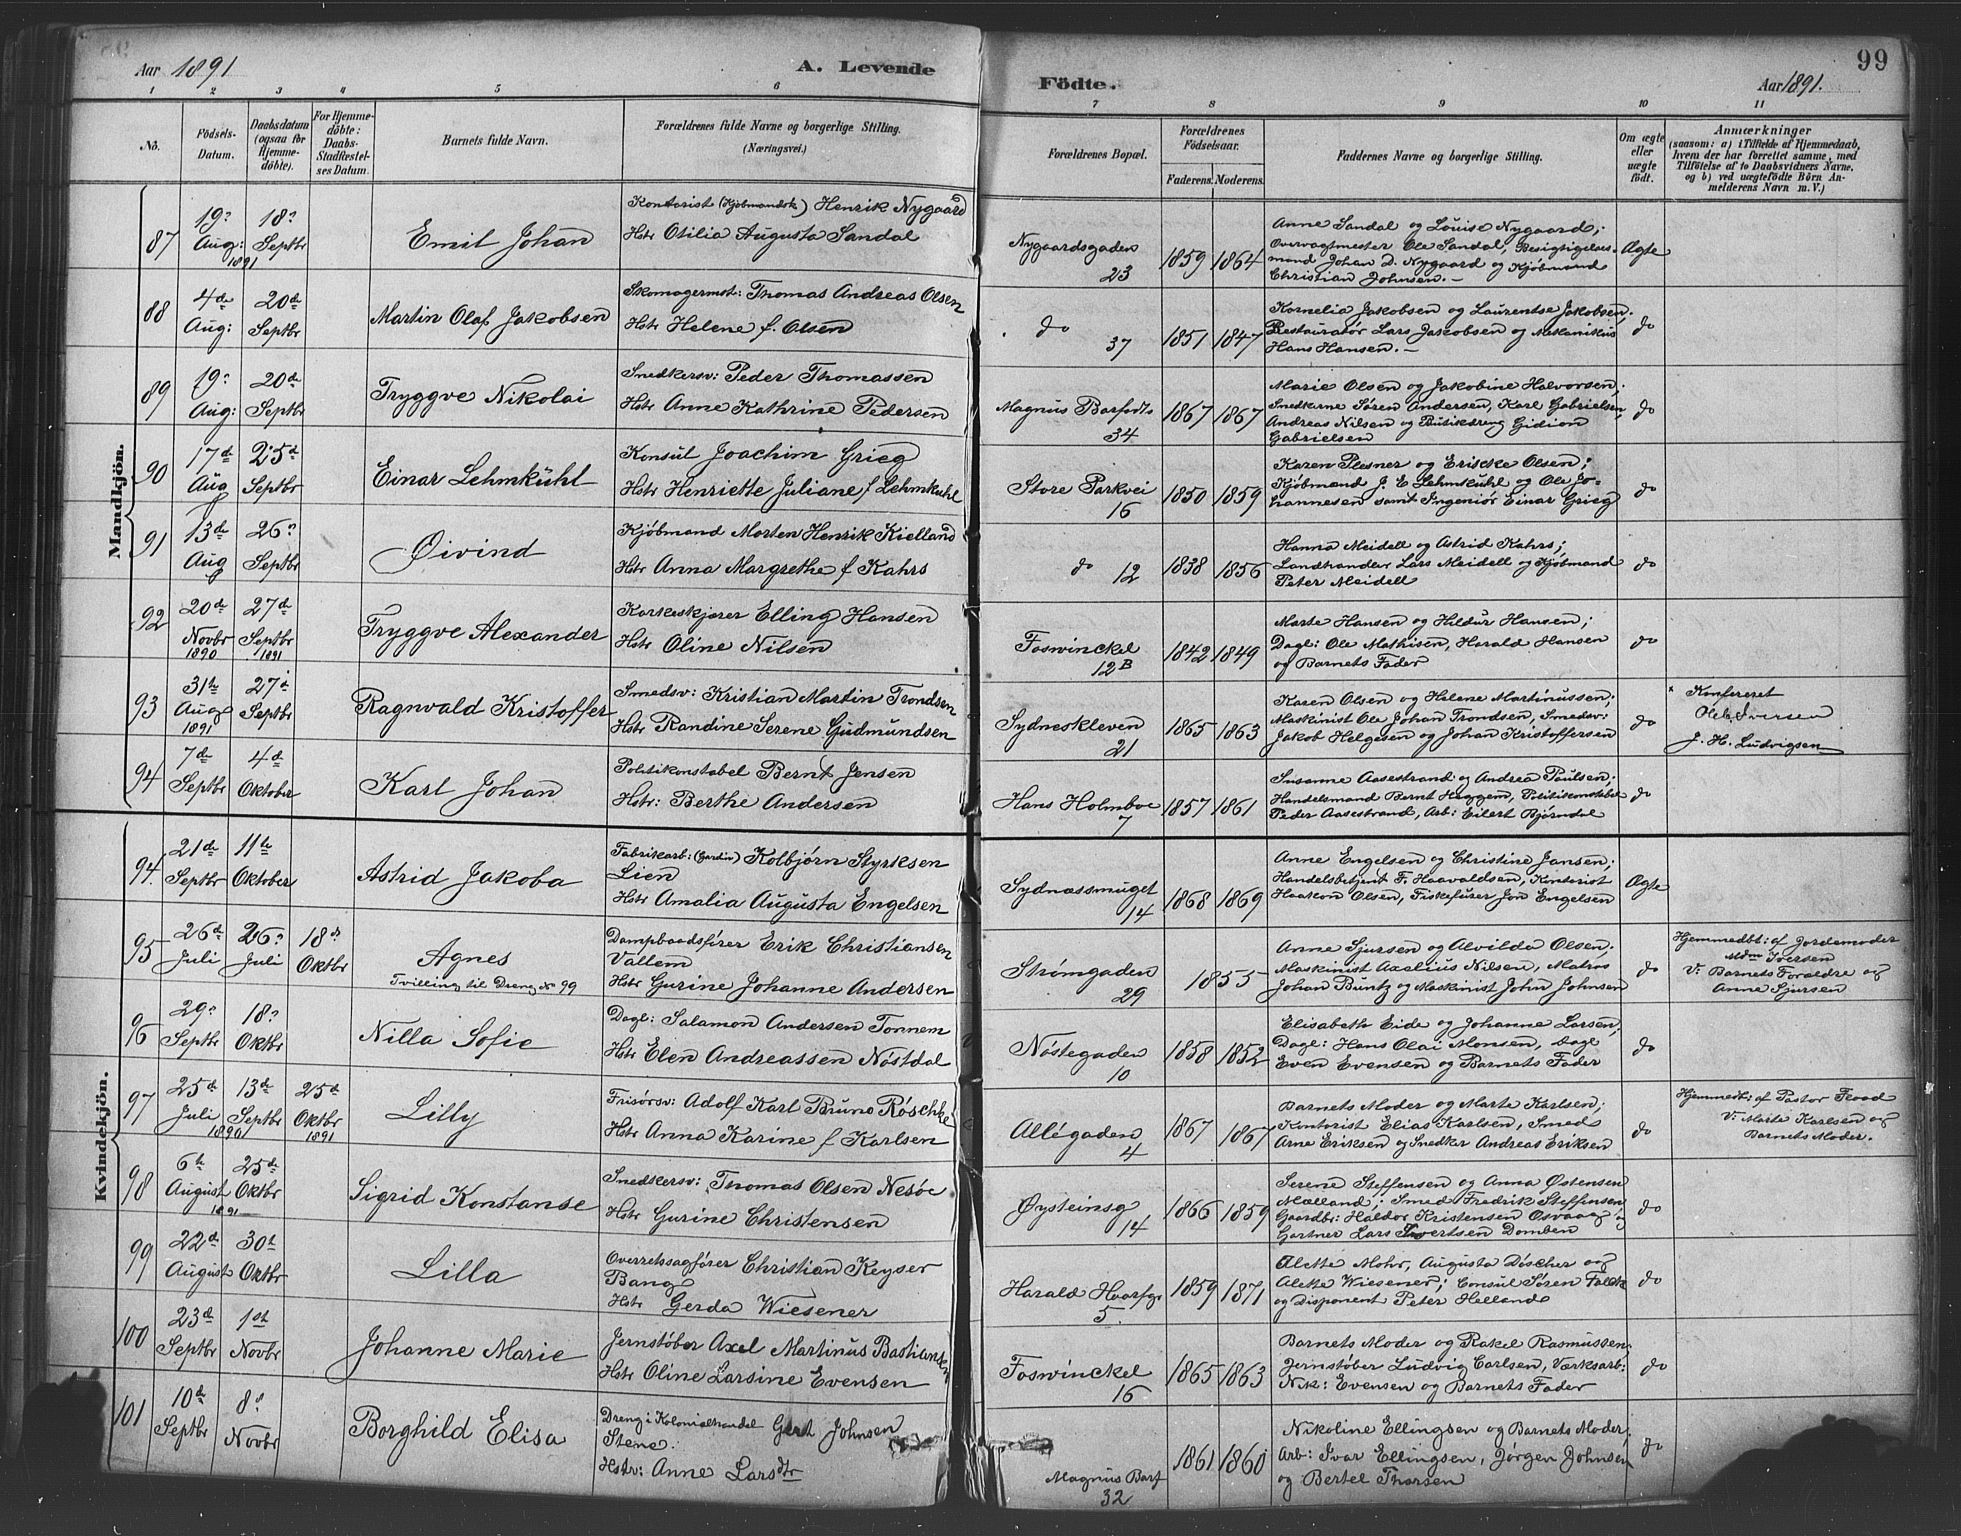 Aar 1891
A. Levende
Födte.
Aar 1891.
99
1 2 3 4 5 6 7 8 9 10 11
No.
Födsels-Datum.
Daabsdatum (ogsaa for Hjemme-döbte).
For Hjemme-döbte: Daabs-Stadfæstel-ses Datum.
Barnets fulde Navn.
Forældrenes fulde Navne og borgerlige Stilling. (Næringsvei.)
Forældrenes Bopæl.
Forældrenes Födselsaar.
Faderens. Moderens.
Faddernes Navne og borgerlige Stilling.
Om ægte eller uægte födt.
Anmærkninger
(saasom: a) i Tilfælde af Hjemmedaab, hvem der har forrettet samme, med Tilföielse af to Daabsvidners Navne, og b) ved uægtefödte Börn An-melderens Navn m. V.)
Mandkjön.
87 19. Aug: 1891 18. Septbr Emil Johan
Kontorist (Kjøbmandsk) Henrik Nygaard
Hstr Otilia Augusta Sandal
Nygaardsgaden 23 1859 1864
Anne Sandal og Louise Nygaard;
Overvagtmester Ole Sandal, Besigtigelses-
mand Johan D. Nygaard og Kjøbmand
Christian Johnsen.-
Ægte
88 4de Aug: 20de Septbr Martin Olaf Jakobsen
Skomagermst: Thomas Andreas Olsen
Hstr Helene f. Olsen
do 37 1851 1847
Kornelia Jakobsen og Laurentse Jakobsen,
Restauratør Lars Jakobsen og Mekanikus
Hans Hansen.-
do
89 19. Aug: 20de Septbr Tryggve Nikolai
Snedkersv: Peder Thomassen
Hstr Anne Kathrine Pedersen
Magnus Barfodts 34 1867 1867
Marie Olsen og Jakobine Halvorsen;
Snedkerne Søren Andersen, Karl Gabrielsen,
Andreas Nilsen og Butikdreng Gidion
Gabrielsen
do
90 17d Aug 25d Septbr Einar Lehmkühl
Konsul Joachim Grieg
Hstr Henriette Juliane f Lehmkuhl
Store Parkvei 16 1850 1859
Karen Plesner og Erikke Olsen;
Kjøbmand J. E Lehmkühl og Ole Jo-
hannesen samt Ingeniør Einar Grieg
do
91 13de Aug 26. Septbr Øivind
Kjøbmand Morten Henrik Kielland
Hstr Anna Margrethe f Kahrs
do 12 1838 1856
Hanna Meidell og Astrid Kahrs;
Landhandler Lars Meidell og Kjøbmand
Peter Meidell
do
92 20de Novbr 1890 27de Septbr 1891 Tryggve Alexander
Korkeskjærer Elling Hansen
Hstr Oline Nilsen
Foswinckel 12B 1842 1849
Marte Hansen og Hildur Hansen;
Dagl: Ole Mathisen, Harald Hansen
og Barnets Fader
do
93 31te Aug 1891 27d Septbr Ragnvald Kristoffer
Smedsv: Kristian Martin Trondsen
Hstr Randine Serene Gudmundsen
Sydneskleven 21 1865 1863
Karen Olsen og Helene Martinussen;
Maskinist Ole Johan Trondsen, Smedsv:
Jakob Helgesen og Johan Kristoffersen
do
Konfereret
Iversen
J. H. Ludvigsen
94 7de Septbr 4d Oktober Karl Johan
Politikonstabel Bernt Jensen
Hstr: Berthe Andersen
Hans Holmboe 7 1857 1861
Susanne Aasestrand og Andrea Paulsen;
Handelsmand Bernt Heggem, Politikonstabel
Peder Aasestrand, Arb: Eilert Bjørndal
do
Kvindekjön.
94. 21de Septbr 11te Oktober Astrid Jakoba
Fabrikarb: (Gardin) Kolbjørn Styrksen
Lien
Hstr Amalia Augusta Engelsen
Sydnæssmuget 14 1868 1869
Anne Engelsen og Christine Jansen;
Handelsbetjent F. Haavaldsen, Kontorist
Haakon Olsen, Fiskefører Jon Engelsen
Ægte
95 26d Juli 26. Juli 18de Oktbr Agnes
Tvilling til Dreng No 99
Dampbaadsfører Erik Christiansen
Vallem
Hstr Gurine Johanne Andersen
Strømgaden 29 1855
Anne Sjursen og Alvilde Olsen;
Maskinist Axelius Nilsen, Matros
Johan Buntz og Maskinist John Johnsen
do
Hjemmedbt: af Jordemoder
Mdm Iversen
V: Barnets Forældre og
Anne Sjursen
96 29. Septbr 18. Oktbr Nilla Sofie
Dagl: Salamon Andersen Tonnem
Hstr Elen Andreassen Nøstdal
Nøstegaden 10 1858 1852
Elisabeth Eide og Johanne Larsen,
Dagl: Hans Olai Monsen, Dagl
Even Evensen og Barnets Fader
do
97 25d Juli 1890 13de Septbr 25d Oktbr 1891 Lilly
Frisørsv: Adolf Karl Bruno Røschke
Hstr Anna Karine f Karlsen
Allégaden 4 1867 1867
Barnets Moder og Marte Karlsen;
Kontorist Elias Karlsen, Smed
Arne Eriksen og Snedker Andreas Eriksen
do
Hjemmedb: af Pastor Flood
V: Marte Karlsen og
Barnets Moder.
98 6te August 1891 25de Oktbr Sigrid Konstanse
Snedkersv: Thomas Olsen Nesøe
Hstr Gurine Christensen
Øysteinsg 14 1866 1859
Serene Steffensen og Anna Østensen
Mælland; Smed Fredrik Steffensen
Gaardbr: Haldor Kristensen Osvaag og
Gartner Lars Sivertsen Domben
do
99 22d August 30t Oktbr Lilla
Overretssagfører Christian Keyser
Bang
Hstr Gerda Wiesener
Harald Haarfgr 5. 1859 1871
Alette Mohr, Augusta Döscher og
Alette Wiesener; Consul Søren Falck
og Disponent Peter Helland
do
100 23d Septbr 1st Novbr Johanne Marie
Jernstøber Axel Martinus Bastiansen
Hstr Oline Larsine Evensen
Foswinckel 16 1865 1863
Barnets Moder og Rakel Rasmussen,
Jernstøber Ludvig Carlsen, Værksarb:
Nik: Evensen og Barnets Fader
do
101 10de Septbr 8d Novbr Borghild Elisa
Dreng i Kolonialhandel Gert Johnsen
Stene.
Hstr: Anne Larsdtr
Magnus Barf 32 1861 1860
Nikoline Ellingsen og Barnets Moder;
Arb: Ivar Ellingsen, Jørgen Johnsen
og Bertel Thorsen
do